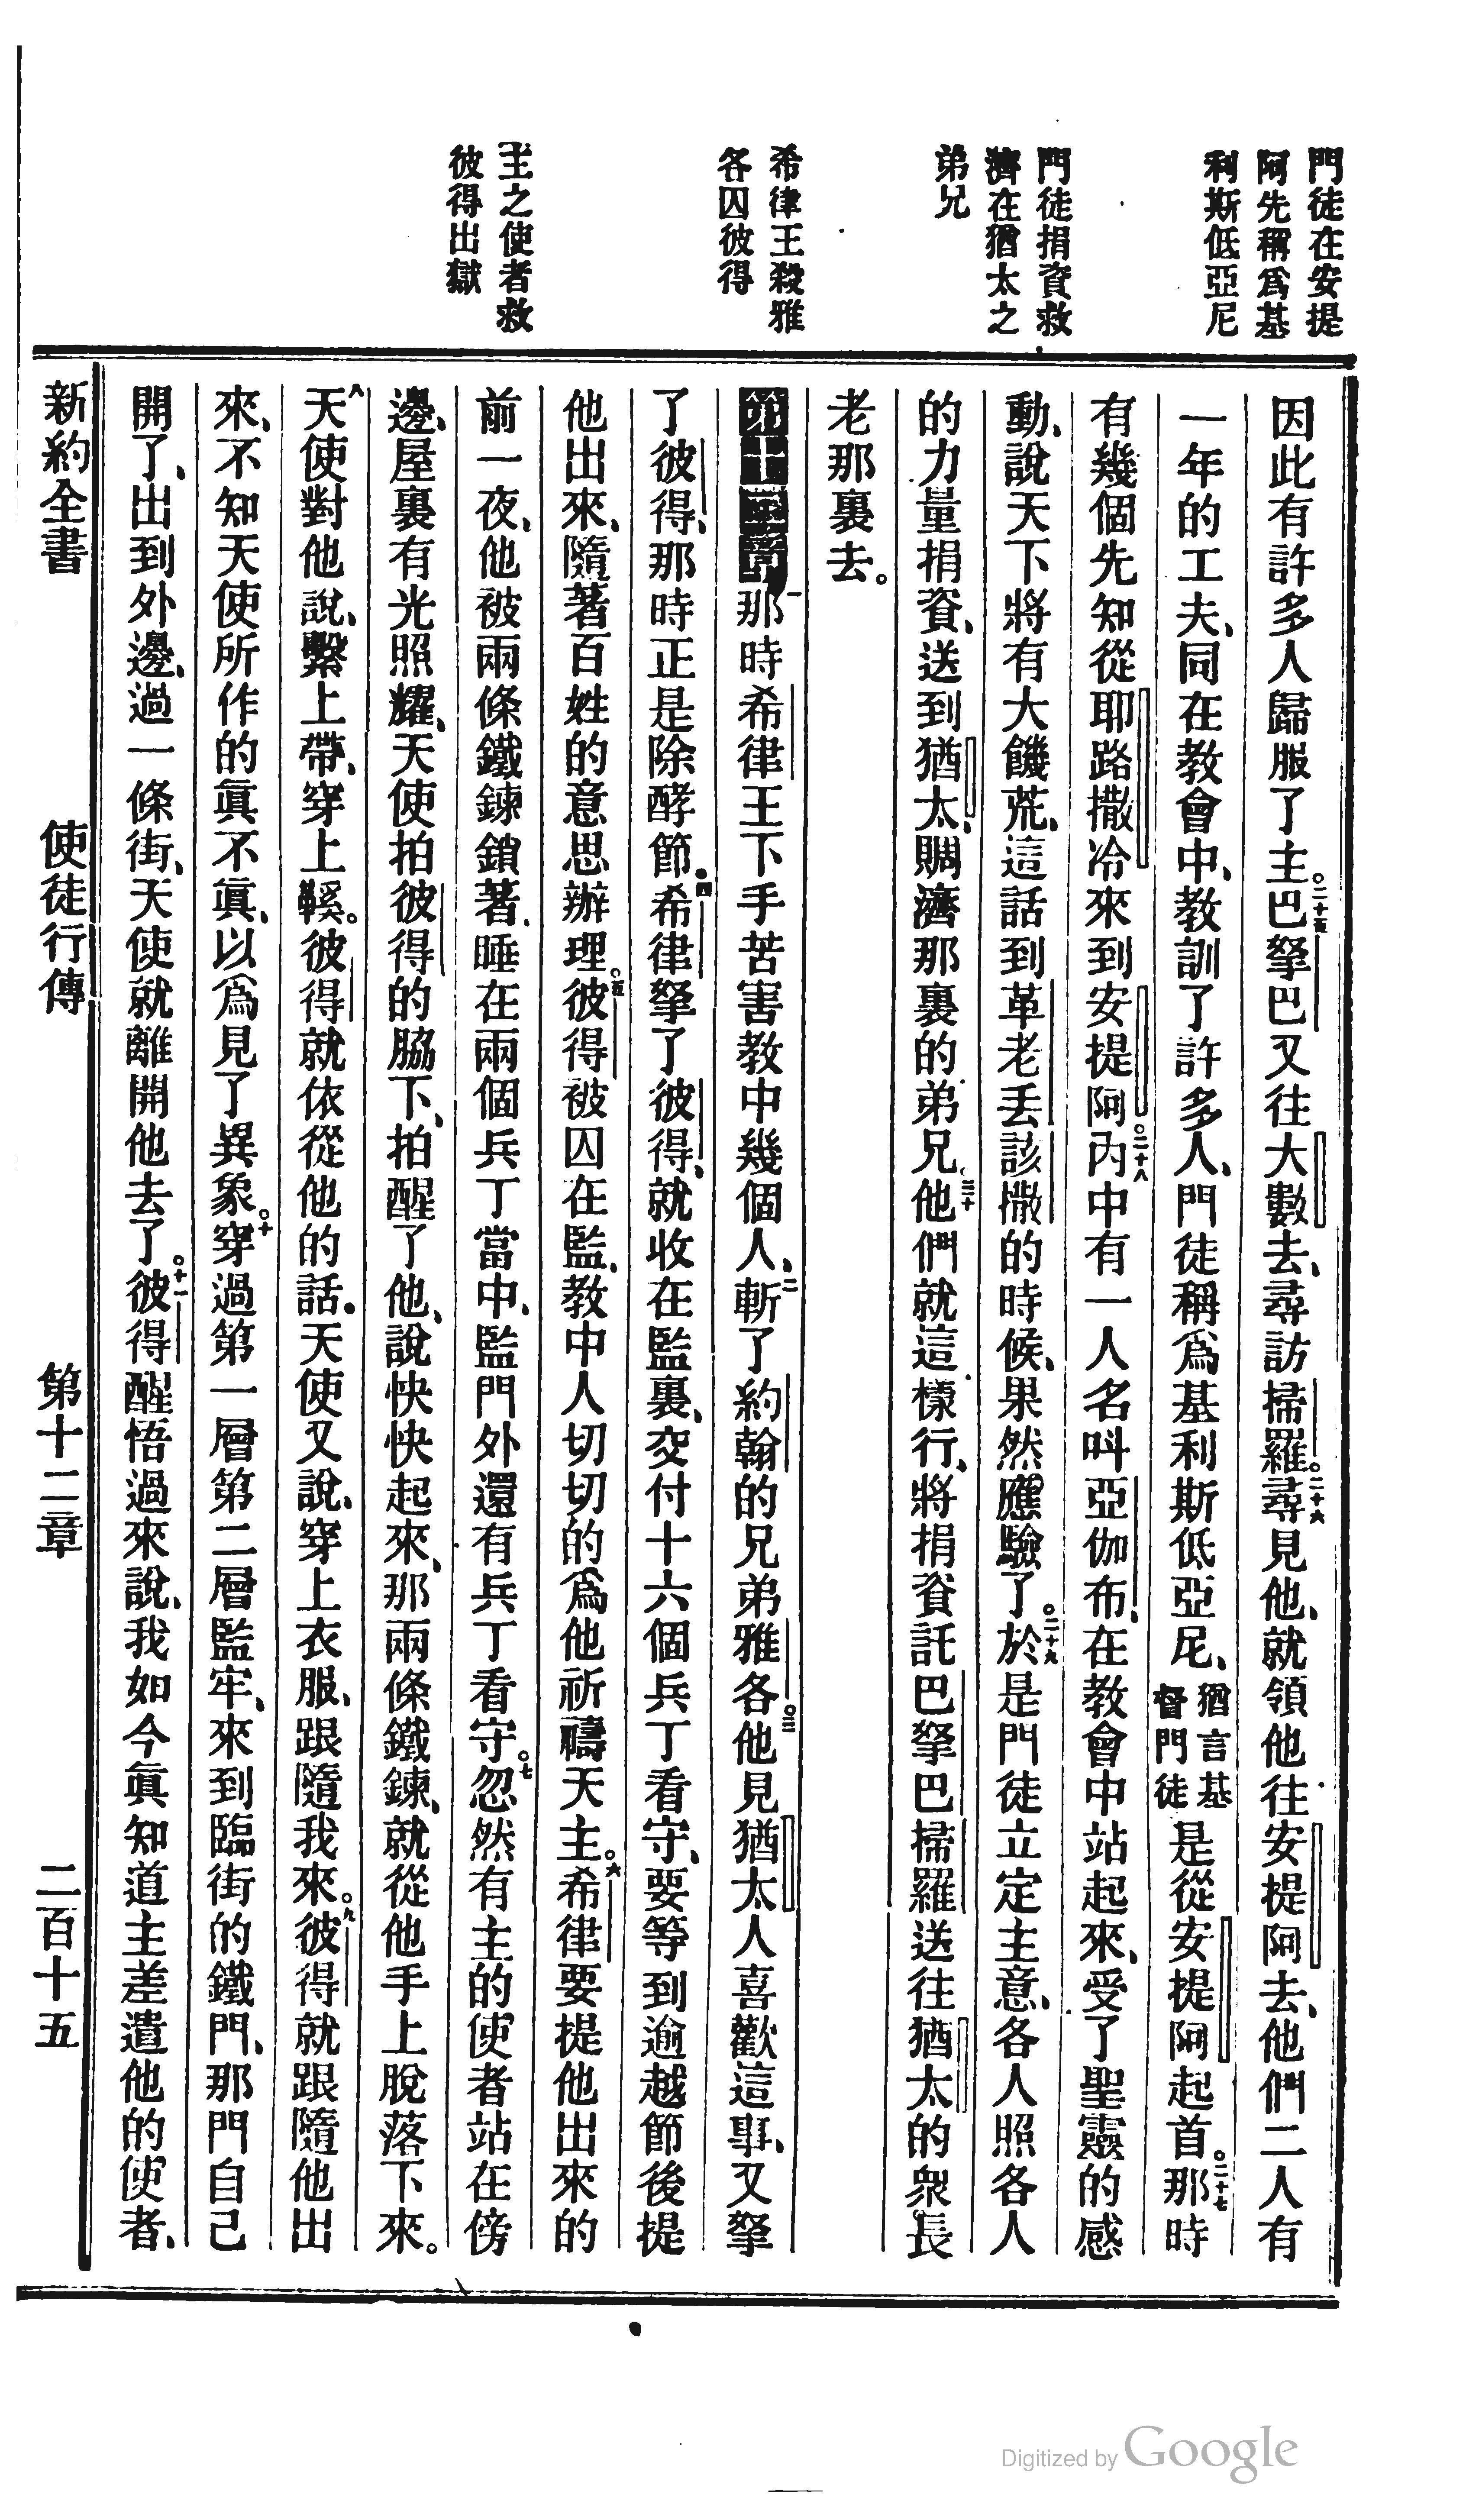 門徒在安提
阿先稱爲基
利斯低亞尼
門徒捐資救
濟在猶太之
弟兄
希律王殺雅
各囚彼得
主之使者救
彼得出獄
因此有許多人歸服了主。二十五巴拏巴又往大數去、尋訪掃羅。二十六尋見他、就領他往安提阿去、他們二人有
一年的工夫、同在教會中、教訓了許多人、門徒稱爲基利斯低亞尼、猶言基督門徒是從安提阿起首。二十七那時
有幾個先知從耶路撒冷來到安提阿。二十八內中有一人名叫亞伽布、在教會中站起來、受了聖靈的感
動、說天下將有大饑荒、這話到革老丟該撒的時候、果然應驗了。二十九於是門徒立定主意、各人照各人
的力量捐資、送到猶太、賙濟那裏的弟兄。三十他們就這樣行、將捐資託巴拏巴掃羅送往猶太的衆長
老那裏去。
一那時希律王下手苦害教中幾個人、二斬了約翰的兄弟雅各。三他見猶太人喜歡這事、又拏
了彼得、那時正是除酵節。四希律拏了彼得、就收在監裏、交付十六個兵丁看守、要等到逾越節後提
他出來、隨著百姓的意思辦理。五彼得被囚在監、教中人切切的爲他祈禱天主。六希律要提他出來的
前一夜、他被兩條鐵鍊鎖著、睡在兩個兵丁當中、監門外還有兵丁看守。七忽然有主的使者站在傍
邊、屋裏有光照耀、天使拍彼得的脇下、拍醒了他、說快快起來、那兩條鐵鍊、就從他手上脫落下來。
八天使對他說、繫上帶、穿上鞋。彼得就依從他的話。天使又說、穿上衣服、跟隨我來。九彼得就跟隨他出
來、不知天使所作的眞不眞、以爲見了異象。十穿過第一層第二層監牢、來到臨街的鐵門、那門自己
開了、出到外邊、過一條街、天使就離開他去了。十一彼得醒悟過來說、我如今眞知道主差遣他的使者、
新約全書　使徒行傳　第十二章　二百十五
Digitized by Google